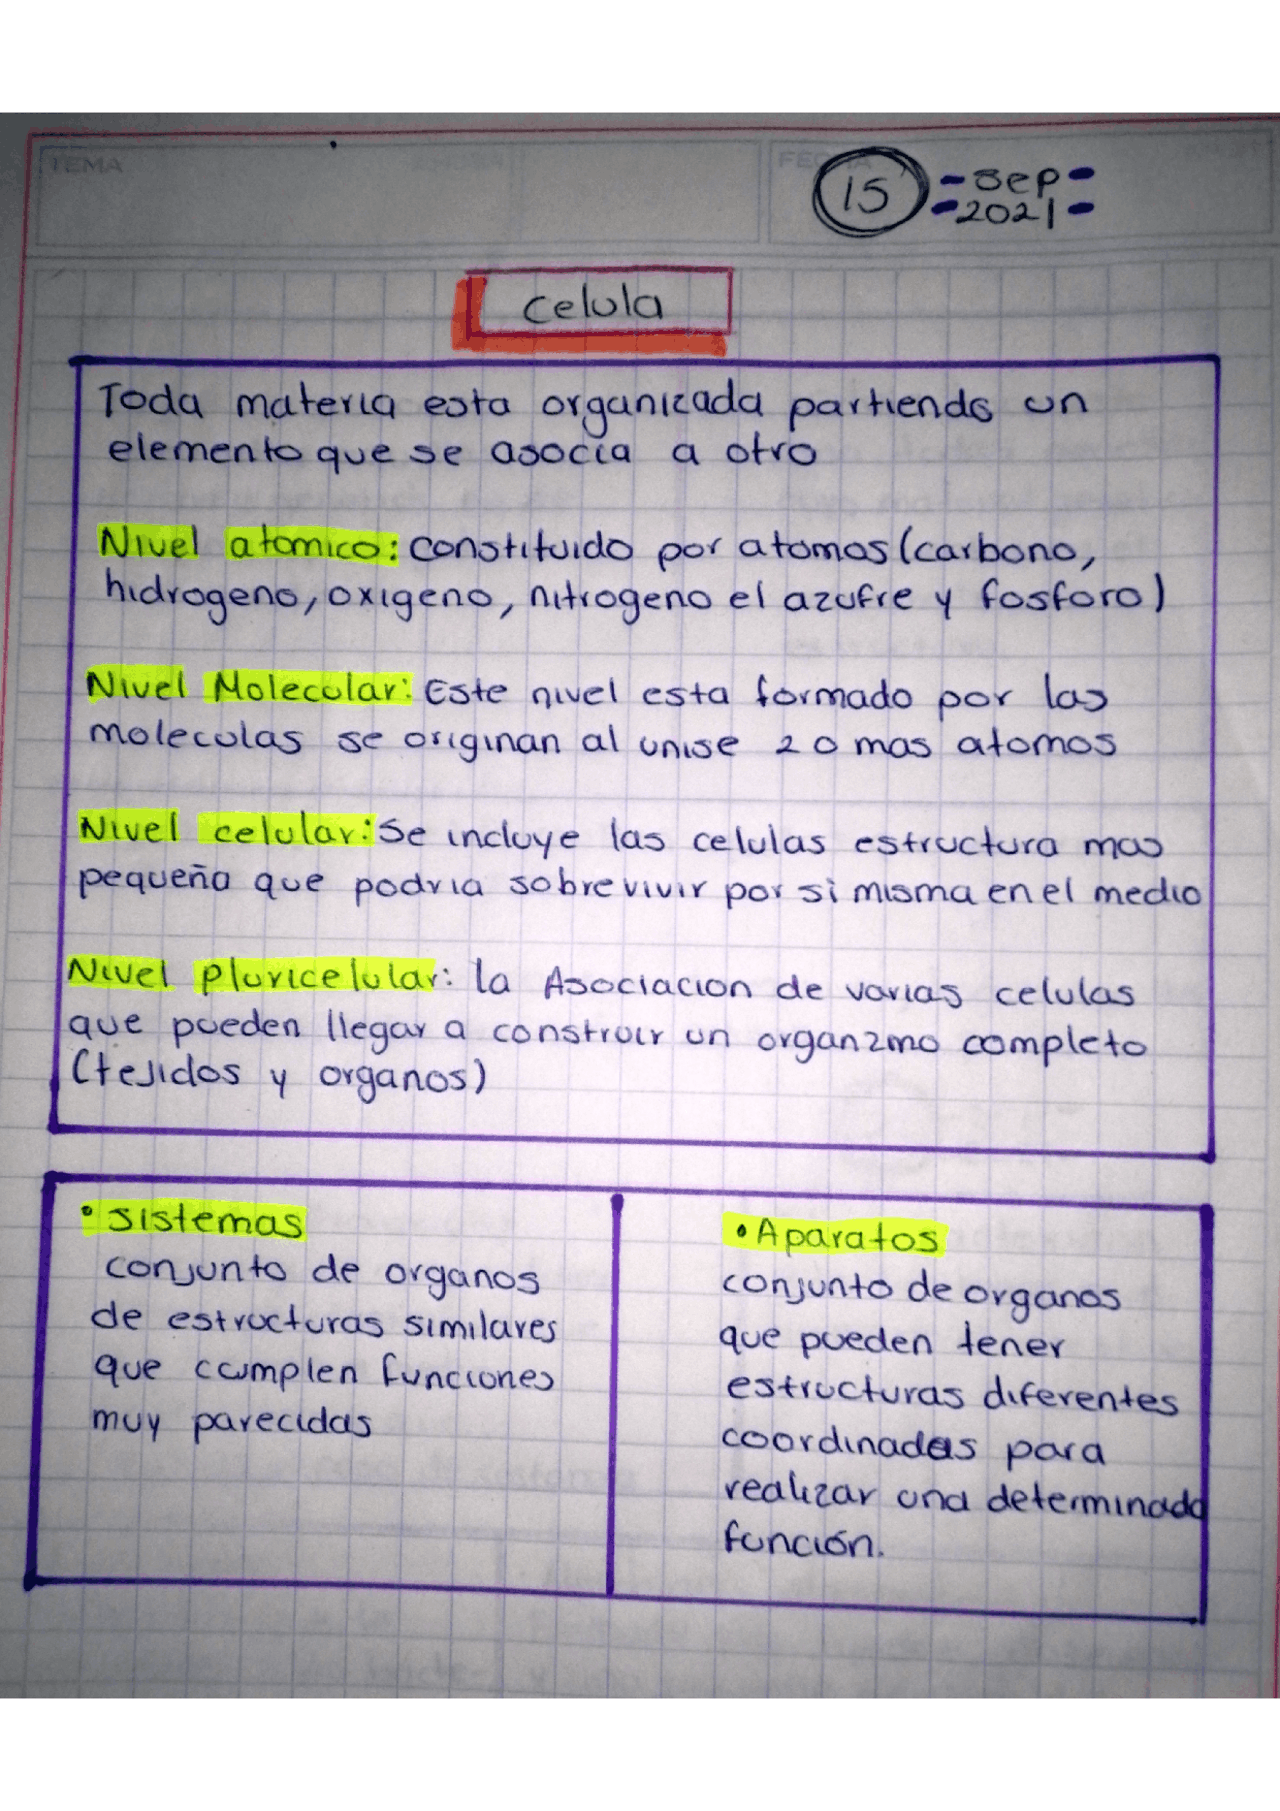 TEMA
FECHA
15 - Sep -
- 2021 -
Celula
Toda materia esta organizada partiendo un
elemento que se asocia a otro
Nivel atomico: constituido por atomos (carbono,
hidrogeno, oxigeno, nitrogeno el azufre y fosforo)
Nivel Molecular: Este nivel esta formado por las
moleculas se originan al unise 2 o mas atomos
Nivel celular: Se incluye las celulas estructura mas
pequeña que podria sobrevivir por si misma en el medio
Nivel pluricelular: la Asociacion de varias celulas
que pueden llegar a construir un organzmo completo
(tejidos y organos)
• Sistemas
conjunto de organos
de estructuras similares
que cumplen funciones
muy parecidas
• Aparatos
conjunto de organos
que pueden tener
estructuras diferentes
coordinadas para
realizar una determinada
función.